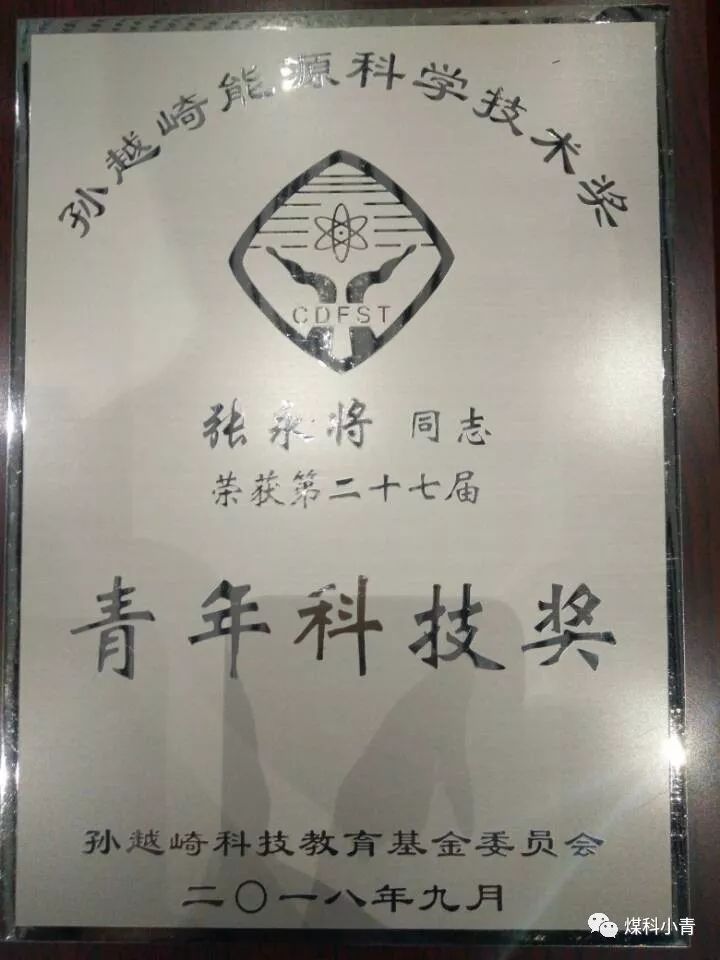 孙越崎能源科学技术奖
CDFST
张永将 同志
荣获第二十七届
青年科技奖
孙越崎科技教育基金委员会
二〇一八年九月
煤科小青